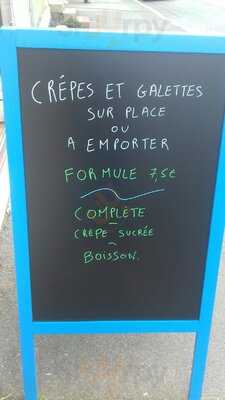 CRÉPES ET GALETTES
SUR PLACE
OU
A EMPORTER
FORMULE 7,5€
COMPLÈTE
CRÊPE SUCRÉE
BOISSON.